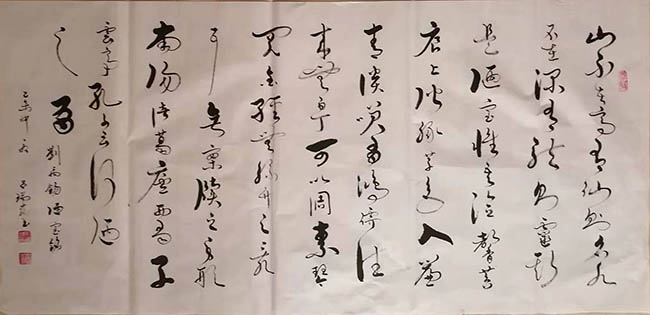 山不在高有仙則名水
不在深有龍則靈斯
是陋室惟吾德馨苔
痕上階綠草色入簾
青談笑有鴻儒往
來無白丁可以調素琴
閱金經無絲竹之亂
耳無案牘之勞形
南陽諸葛廬西蜀子
雲亭孔子云何陋
之有
劉禹錫陋室銘
乙未仲夏 書